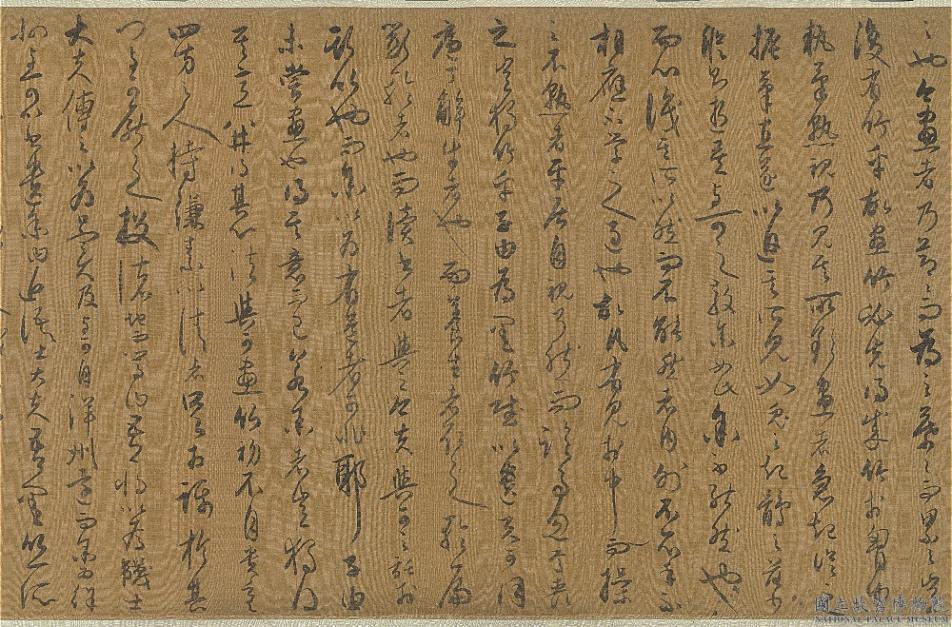 之也今畫者乃節節而為之葉葉而累之豈
復有竹乎故畫竹必先得成竹於胸中
執筆熟視乃見其所欲畫者急起從之
振筆直遂以追其所見如兔之起鶻之落少
縱則逝矣與可之教余如此余不能然也
而心識其所以然而不能然者內外不一心手不
相應不學之過也故凡有見於中而操
之不熟者平居自視了然而臨事忽焉喪
之豈獨竹乎子由為墨竹賦以遺與可曰
庖丁解牛者也而養生者取之輪扁
斲輪者也而讀書者與之今夫與可之託於
斯竹也而余以為有道者則非耶子由
未嘗畫也得其意而已若余者豈獨得
其意并得其法與可畫竹初不自貴重
四方之人持縑素以請者足相躡於其
門與可厭之投諸地而罵曰吾將以為韈士
大夫傳之以為口實及與可自洋州還而余為徐
州與可以書遺余曰近語士大夫吾墨竹一派
國立故宮博物院
NATIONAL PALACE MUSEUM